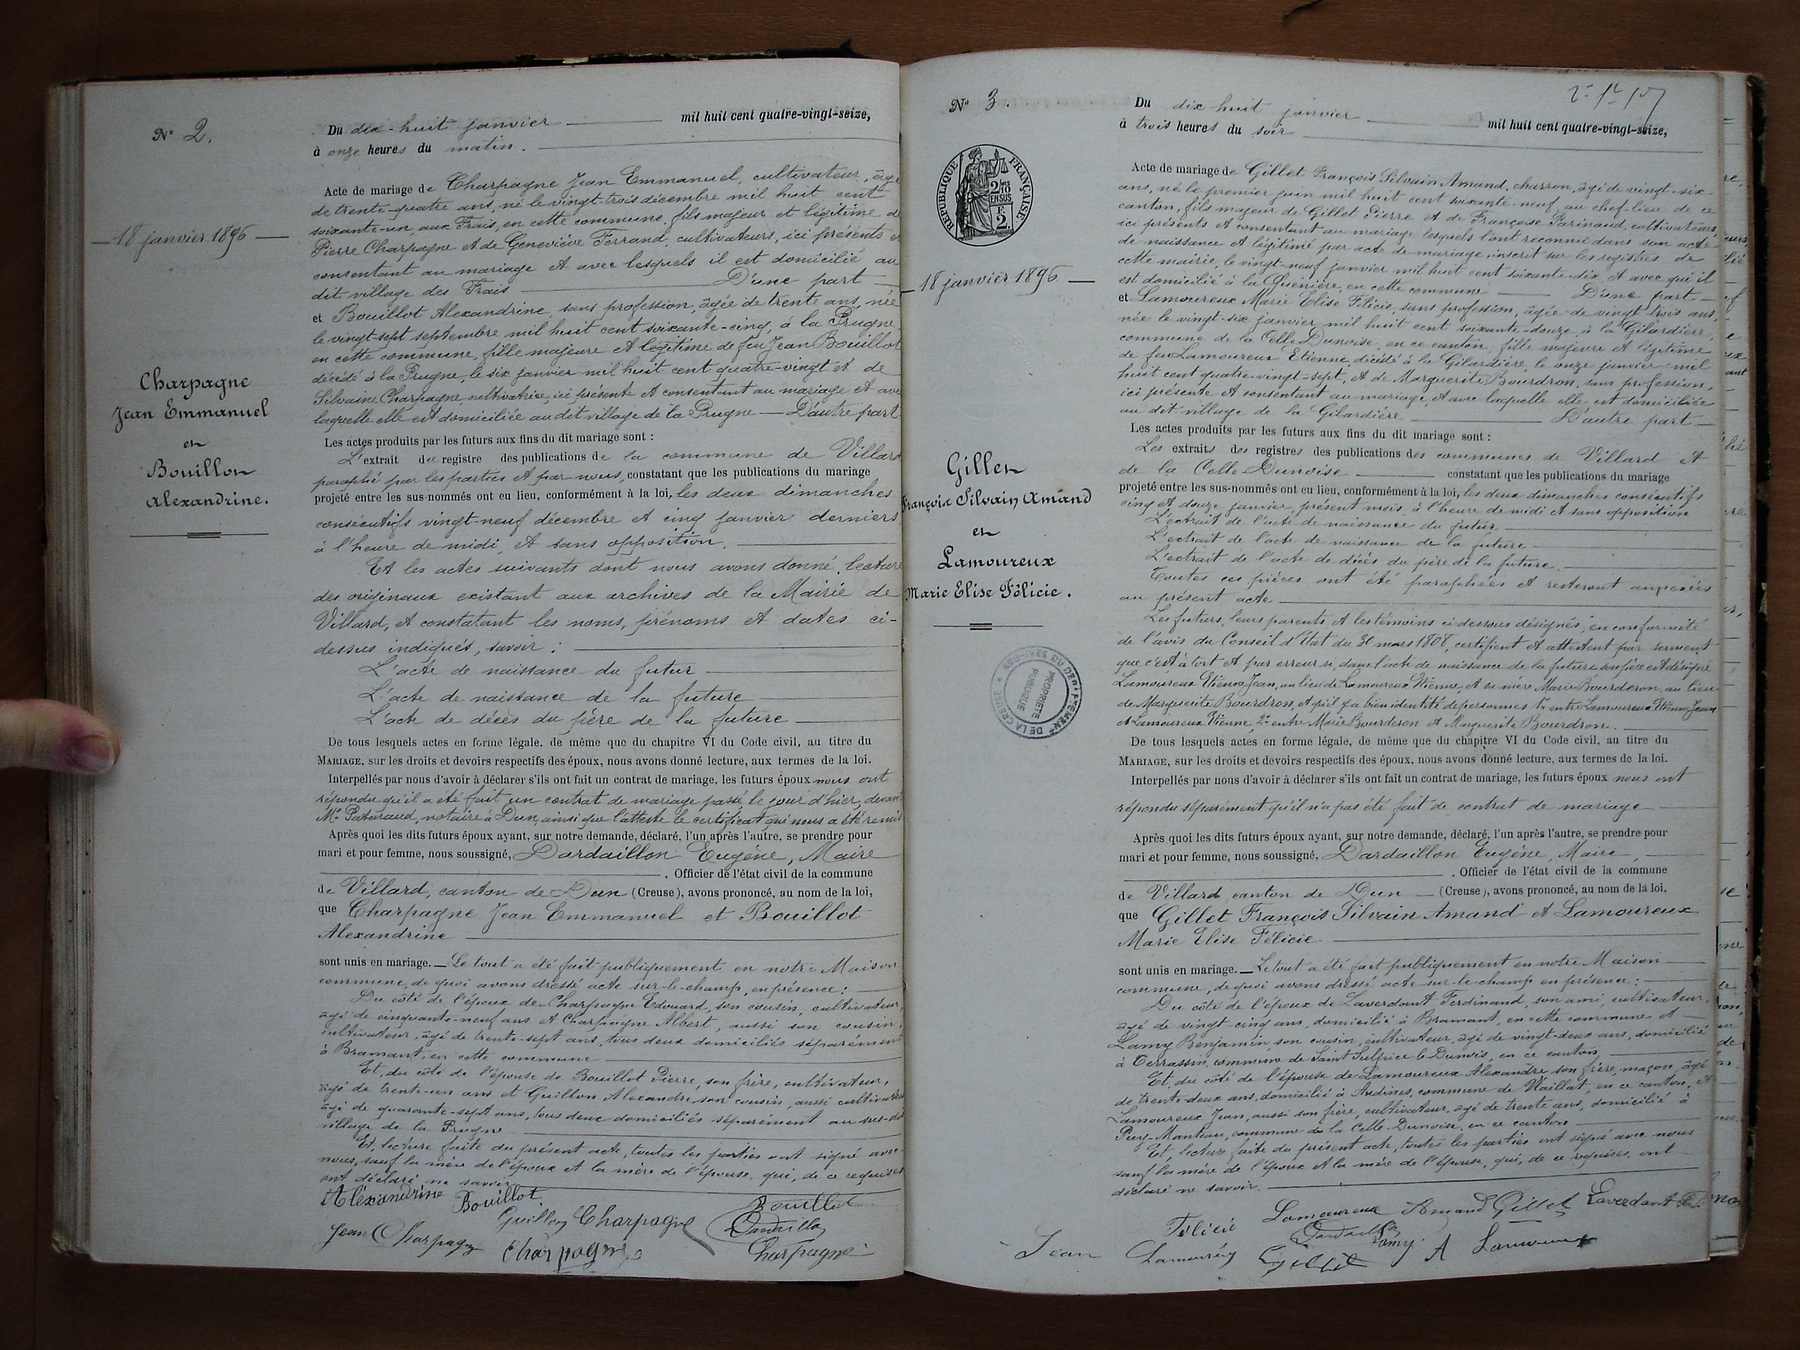 N° 2.
18 janvier 1896
Charpagne
Jean Emmanuel
et
Bouillon
Alexandrine.
Du dix-huit janvier mil huit cent quatre-vingt-seize,
à onze heures du matin.
Acte de mariage de Charpagne Jean Emmanuel, cultivateur, âgé
de trente-quatre ans, né le vingt trois décembre mil huit cent
soixante-un, aux Frais, en cette commune, fils majeur et légitime de
Pierre Charpagne et de Geneviève Ferrand, cultivateurs, ici présents et
consentant au mariage et avec lesquels il est domicilié au
dit village des Frais D'une part
et Bouillot Alexandrine, sans profession, âgée de trente ans, née
le vingt-sept septembre mil huit cent soixante-cinq, à la Prugne,
en cette commune, fille majeure et légitime de feu Jean Bouillot
décédé à la Prugne, le six janvier mil huit cent quatre-vingt et de
Silvaine Charpagne, cultivatrice, ici présente et consentant au mariage et avec
laquelle elle est domiciliée au dit village de la Prugne — D'autre part
Les actes produits par les futurs aux fins du dit mariage sont :
L'extrait du registre des publications de la commune de Villard
paraphé par les parties et par nous, constatant que les publications du mariage
projeté entre les sus-nommés ont eu lieu, conformément à la loi, les deux dimanches
consécutifs vingt-neuf décembre et cinq janvier derniers
à l'heure de midi, et sans opposition.
Et les actes suivants dont nous avons donné lecture
des originaux existant aux archives de la Mairie de
Villard, et constatant les noms, prénoms et dates ci-
dessus indiqués, savoir :
L'acte de naissance du futur
L'acte de naissance de la future
L'acte de décès du père de la future
De tous lesquels actes en forme légale, de même que du chapitre VI du Code civil, au titre du
MARIAGE, sur les droits et devoirs respectifs des époux, nous avons donné lecture, aux termes de la loi.
Interpellés par nous d'avoir à déclarer s'ils ont fait un contrat de mariage, les futurs époux nous ont
répondu qu'il a été fait un contrat de mariage passé le jour d'hier, devant
Me notaire à Dun, ainsi que l'atteste le certificat qui nous a été remis
Après quoi les dits futurs époux ayant, sur notre demande, déclaré, l'un après l'autre, se prendre pour
mari et pour femme, nous soussigné, Dardaillon Eugène, Maire
. Officier de l'état civil de la commune
de Villard, canton de Dun (Creuse), avons prononcé, au nom de la loi,
que Charpagne Jean Emmanuel et Bouillot
Alexandrine
sont unis en mariage. — Le tout a été fait publiquement en notre Maison
commune, de quoi avons dressé acte sur-le-champ, en présence :
Du côté de l'époux de Charpagne Edouard, son cousin, cultivateur,
âgé de cinquante-neuf ans et Charpagne Albert, aussi son cousin,
cultivateur, âgé de trente-sept ans, tous deux domiciliés séparément
à Bramant, en cette commune
Et, du côté de l'épouse de Bouillot Pierre, son frère, cultivateur,
âgé de trente-un ans et Guillon Alexandre, son cousin, aussi cultivateur
âgé de quarante-sept ans, tous deux domiciliés séparément au sus-dit
village de la Prugne
Et, lecture faite du présent acte, toutes les parties ont signé avec
nous, sauf la mère de l'époux et la mère de l'épouse, qui, de ce requises
ont déclaré ne savoir
Alexandrine Bouillot Bouillot
Guillon Charpagne Dardaillon
Jean Charpagne Charpagne Charpagne
N° 3.
RÉPUBLIQUE FRANÇAISE
18 janvier 1896
Gillet
François Silvain Amand
et
Lamoureux
Marie Elise Félicie.
ARCHIVES DU DÉPARTEMENT DE LA CREUSE
PROPRIÉTÉ
PUBLIQUE
Du dix-huit janvier mil huit cent quatre-vingt-seize,
à trois heures du soir
Acte de mariage de Gillet François Silvain Amand, charron, âgé de vingt-six
ans, né le premier juin mil huit cent soixante-neuf au chef-lieu de ce
canton, fils majeur de Gillet Pierre et de Françoise Parinaud, cultivateurs,
ici présents et consentant au mariage lesquels l'ont reconnu dans son acte
de naissance et légitimé par acte de mariage inscrit sur les registres de
cette mairie, le vingt-neuf janvier mil huit cent soixante-dix et avec qui il
est domicilié à la en cette commune D'une part
et Lamoureux Marie Elise Félicie, sans profession, âgée de vingt trois ans,
née le vingt-six janvier mil huit cent soixante-douze, à la Gilardière,
commune de la Celle Dunoise, en ce canton, fille majeure et légitime
de feu Lamoureux Etienne, décédé à la Gilardière, le onze janvier mil
huit cent quatre-vingt-sept, et de Marguerite Bourdron, sans profession,
ici présente et consentant au mariage et avec laquelle elle est domiciliée
au dit village de la Gilardière D'autre part
Les actes produits par les futurs aux fins du dit mariage sont :
Les extraits des registres des publications des communes de Villard et
de la Celle Dunoise constatant que les publications du mariage
projeté entre les sus-nommés ont eu lieu, conformément à la loi, les deux dimanches consécutifs
cinq et douze janvier, présent mois, à l'heure de midi et sans opposition
L'extrait de l'acte de naissance du futur
L'extrait de l'acte de naissance de la future
L'extrait de l'acte de décès du père de la future.
Toutes ces pièces ont été paraphées et resteront annexées
au présent acte
Les futurs, leurs parents et les témoins ci-dessous désignés, en conformité
de l'avis du Conseil d'Etat du 30 mars 1808, certifient et attestent par serment
que c'est à tort et par erreur si, dans l'acte de naissance de la future son père est désigné
Lamoureux Etienne Jean, au lieu de Lamoureux Etienne, et sa mère Marie Bourderon, au lieu
de Marguerite Bourdron, et qu'il y a bien identité de personnes 1° entre Lamoureux Etienne Jean
et Lamoureux Etienne, 2° entre Marie Bourderon et Marguerite Bourdron.
De tous lesquels actes en forme légale, de même que du chapitre VI du Code civil, au titre du
MARIAGE, sur les droits et devoirs respectifs des époux, nous avons donné lecture, aux termes de la loi.
Interpellés par nous d'avoir à déclarer s'ils ont fait un contrat de mariage, les futurs époux nous ont
répondu séparément qu'il n'a pas été fait de contrat de mariage
Après quoi les dits futurs époux ayant, sur notre demande, déclaré, l'un après l'autre, se prendre pour
mari et pour femme, nous soussigné, Dardaillon Eugène, Maire,
. Officier de l'état civil de la commune
de Villard canton de Dun (Creuse), avons prononcé, au nom de la loi,
que Gillet François Silvain Amand et Lamoureux
Marie Elise Félicie
sont unis en mariage. — Le tout a été fait publiquement en notre Maison
commune, de quoi avons dressé acte sur-le-champ en présence :
Du côté de l'époux de Laverdant Ferdinand, son ami, cultivateur,
âgé de vingt cinq ans, domicilié à Bramant, en cette commune et
Lamy Benjamin, son cousin, cultivateur, âgé de vingt-deux ans, domicilié
à commune de Saint Sulpice le Dunois, en ce canton
Et, du côté de l'épouse de Lamoureux Alexandre son frère, maçon, âgé
de trente deux ans, domicilié à commune de Naillat, en ce canton, et
Lamoureux Jean, aussi son frère, cultivateur, âgé de trente ans, domicilié à
Puy-Manteau, commune de la Celle Dunoise, en ce canton
Et, lecture faite du présent acte, toutes les parties ont signé avec nous
sauf la mère de l'époux et la mère de l'épouse, qui, de ce requises, ont
déclaré ne savoir.
Félicie Lamoureux Armand Gillet Laverdant
Dardaillon Lamy
Jean Lamoureux Gillet A Lamoureux